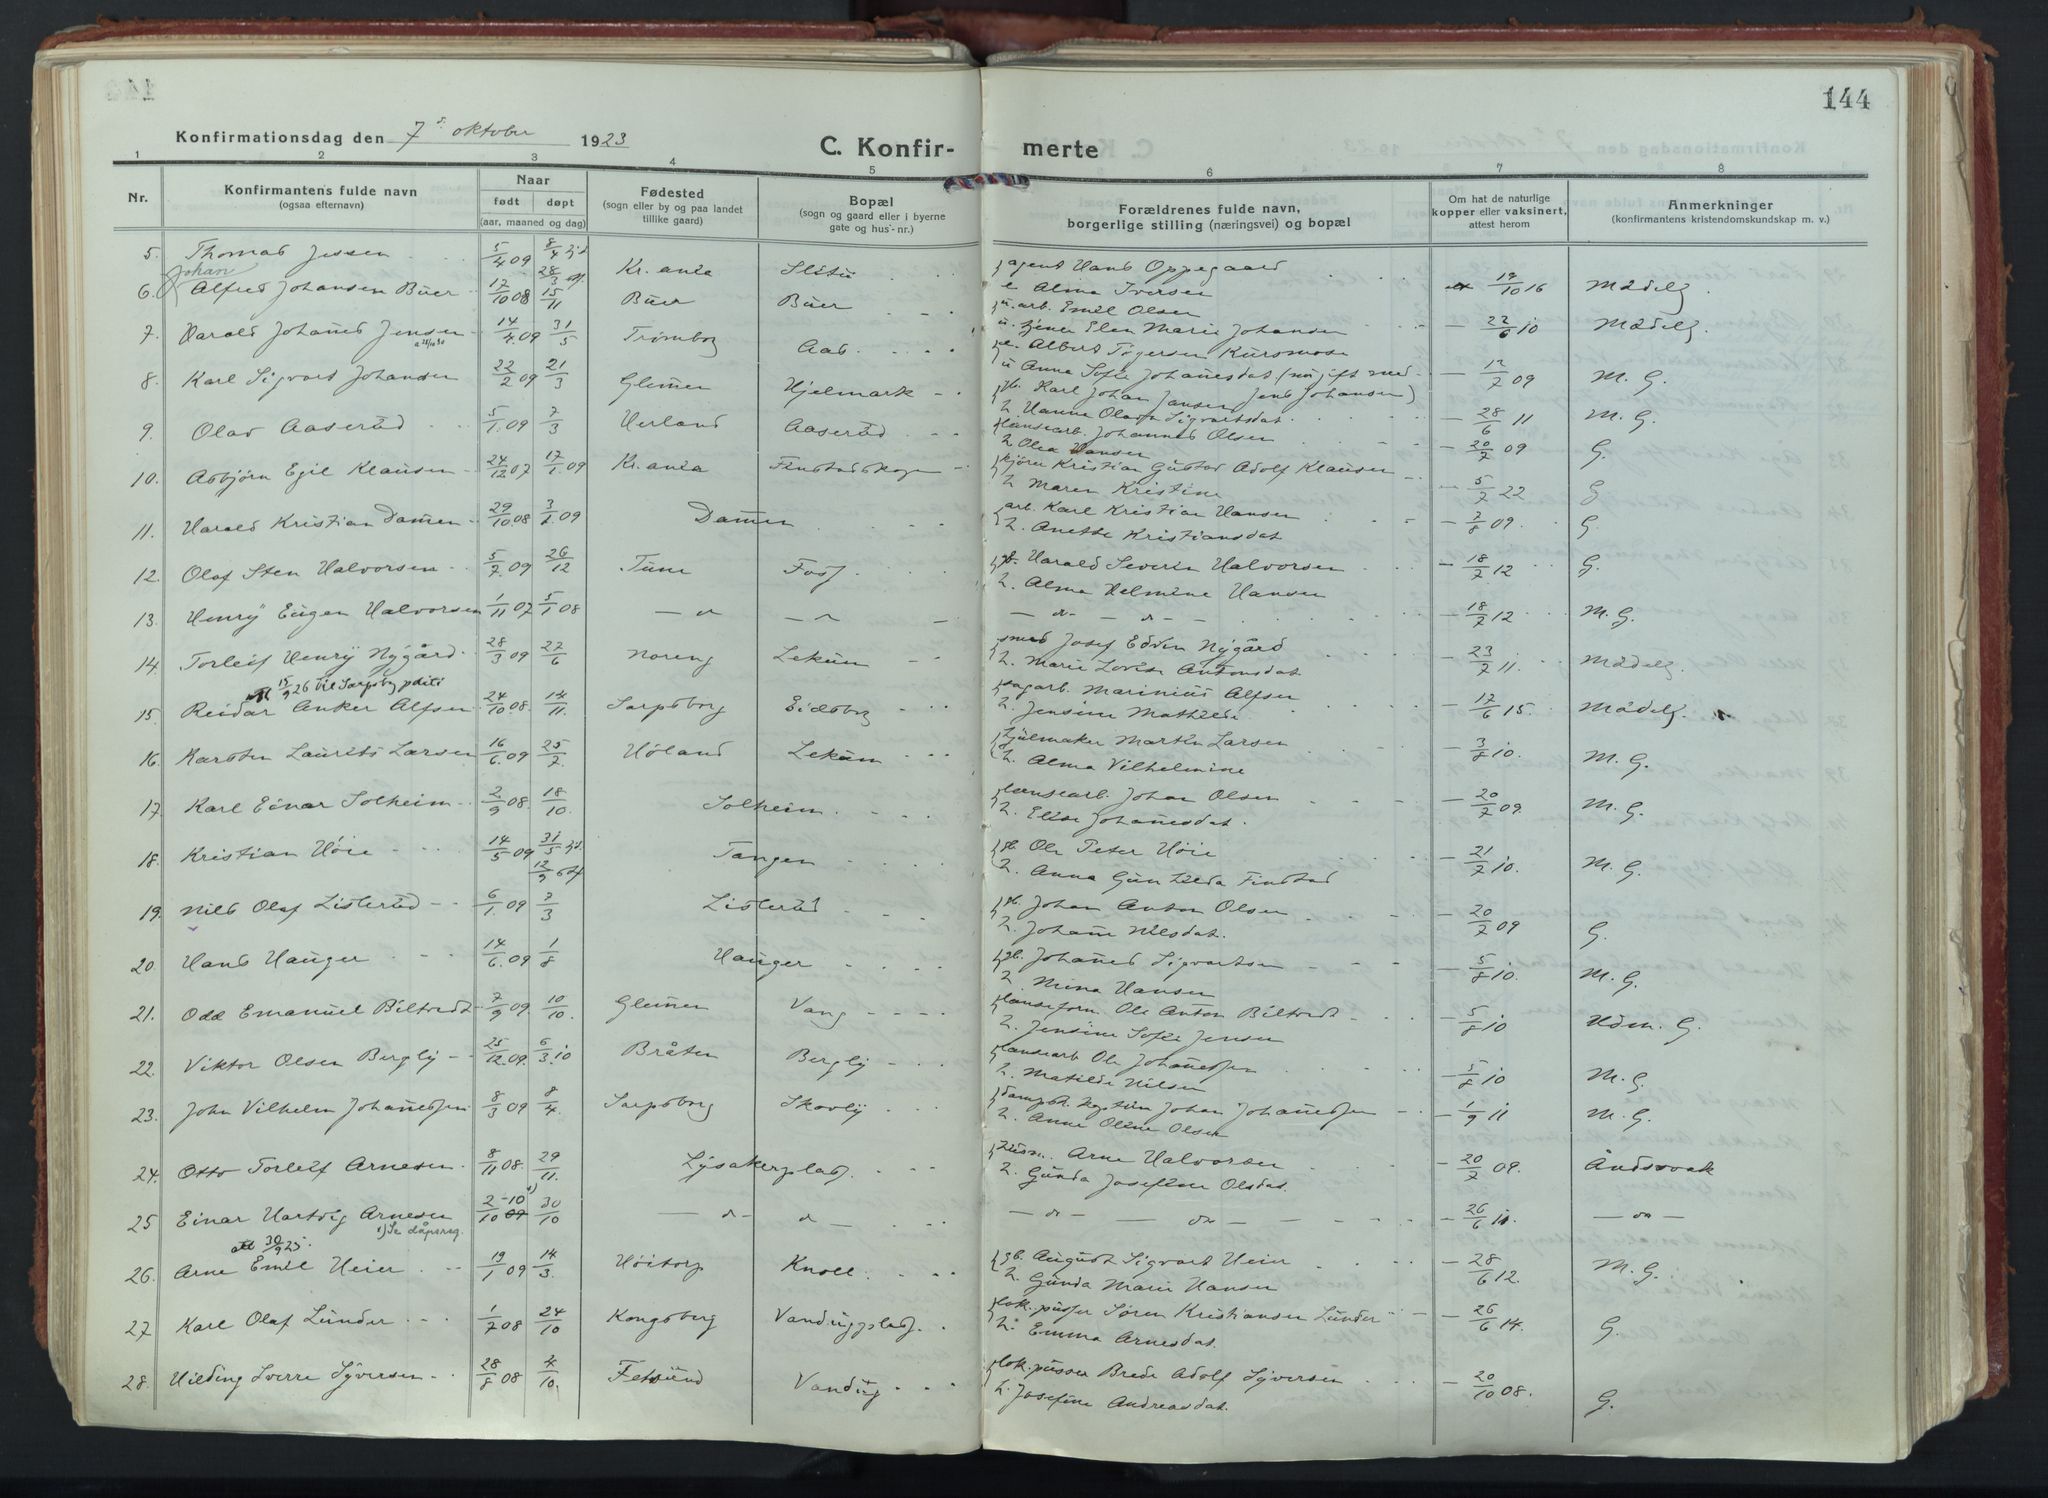 144
Konfirmationsdag den 7de oktober 1923
C. Konfirmerte
1 2 3 4 5 6 7 8
Nr.
Konfirmantens fulde navn
(ogsaa efternavn)
Naar
født døpt
(aar, maaned og dag)
Fødested
(sogn eller by og paa landet
tillike gaard)
Bopæl
(sogn og gaard eller i byerne
gate og hus-nr.)
Forældrenes fulde navn,
borgerlige stilling (næringsvei) og bopæl
Om hat de naturlige
kopper eller vaksinert,
attest herom
Anmerkninger
(konfirmantens kristendomskundskap m. v.)
5. Thomas Jessen 5/4 09 8/4 28/3 Kr.ania Slitu agent Hans Oppegaard 19/10 16 Mådelg.
e. Alma Iversen
Johan
6. Alfred Johansen Buer 17/10 08 15/11 Buer Buer u. arb. Emil Olsen - 22/6 10 Mådelg.
u. tjener Elen Marie Johansen
7. Harald Johannes Jensen 14/4 09 31/5 Trømborg Aas e. Albert Tøgersen Kursmose - 12/7 09 M. G.
u. Anna Sofie Johannesdat. (nu gift med Jens Johansen)
8. Karl Sigvart Johansen 22/2 09 21/3 Glemmen Hjelmark gb. Karl Johan Jansen - 28/6 11 M. G.
h. Hanna Olava Sigvartsdat.
9. Olav Aaserud 5/1 09 7/3 Herland Aaserud Johannes Olsen - 20/7 09 G.
h. Olea Hansen
10. Asbjørn Egil Klausen 24/12 07 17/1 09 Kr.ania Finstadskogen Kristian Gustav Adolf Klausen - 5/7 22 G
h. Maren Kristine
11. Harald Kristian Damen 29/10 08 3/1 09 Damen arb. Karl Kristian Hansen - 7/8 09. G.
h. Anette Kristiansdat
12. Olaf Sten Halvorsen 5/7 09 26/12 Tune Foss. Harald Severin Halvorsen - 18/7 12 G.
h. Alma Helmine Hansen
13. Henry Eugen Halvorsen 1/11 07 5/1 08 — " — " — " — " - 18/7 12 M. G.
14. Torleif Henry Nygård 28/3 09 27/6 Noreng Lekum smed Josef Edvin Nygård - 23/7 11. Mådelg.
h. Marie Lovise Antonsdat.
15/9 26 til Sarpsborg politi
15. Reidar Anker Alfsen 24/10 08. 14/11. Sarpsborg Eidsberg sagarb. Marinius Alfsen - 17/6 15. Mådelg.
h. Jensine Mathilde
16. Karsten Laurits Larsen 16/6 09 25/7. Høland Lekum hjulmaker Martin Larsen - 3/8 10. M. G.
h. Alma Vilhelmine
17. Karl Einar Solheim 2/9 08 18/10. Solheim Johan Olsen - 20/7 09 M. G.
h. Elise Johannesdat.
18. Kristian Høie 14/5 09 31/5 12/9 Tangen gb. Ole Peter Høie - 21/7 10. M. G.
h. Anna Gunhilda Finstad
19. Nils Olaf Listerud 6/1 09 7/3 Listerud gb. Johan Anton Olsen - 20/7 09 G.
h. Johanne Nilsdat.
20. Hans Hauger 14/6 09 1/8 Hauger gb. Johannes Sigvartsen - 5/8 10. M. G.
h. Mina Hansen
21. Odd Emanuel Biltvedt 7/9 09 10/10. Glemmen Vang Ole Anton Biltvedt - 5/8 10 Udm. G.
h. Jensine Sofie Jensen
22. Viktor Olsen Bergly 25/12 09. 6/3 10 Bråten Bergly Ole Johannessen - 5/8 10 M. G.
h. Matilde Nilsen
23. John Vilhelm Johannessen 8/3 09 8/4. Sarpsborg Skovly Johan Johannessen - 1/9 11 M. G.
h. Anne Oline Olsen
24. Otto Torleif Arnesen 8/11 08. 29/11. Lysakerplass. husm. Arne Halvorsen - 20/7 09. Åndssvak
h. Gunda Josefine Olsdat.
25 Einar Hartvig Arnesen 2/10 09 -10 1) 30/10 — " — " — " — " — - 26/6 11. — " —
1) Se dåpsreg.
att 30/9 25.
26. Arne Emil Heier 19/1 09 14/3. Høitorp Knoll. gb. August Sigvart Heier - 28/6 12. M. G.
h. Gunda Marie Hansen
27 Karl Olaf Lunder 1/7 08 24/10 Kongsberg Vanduggplass. lok.pusser Søren Kristiansen Lunder - 26/6 14. G.
h. Emma Arnesdat.
28. Hilding Sverre Syversen 28/8 08 4/10. Fetsund Vandug lok.pusser Brede Adolf Syversen - 20/10 08. G.
h. Josefine Andreasdat.